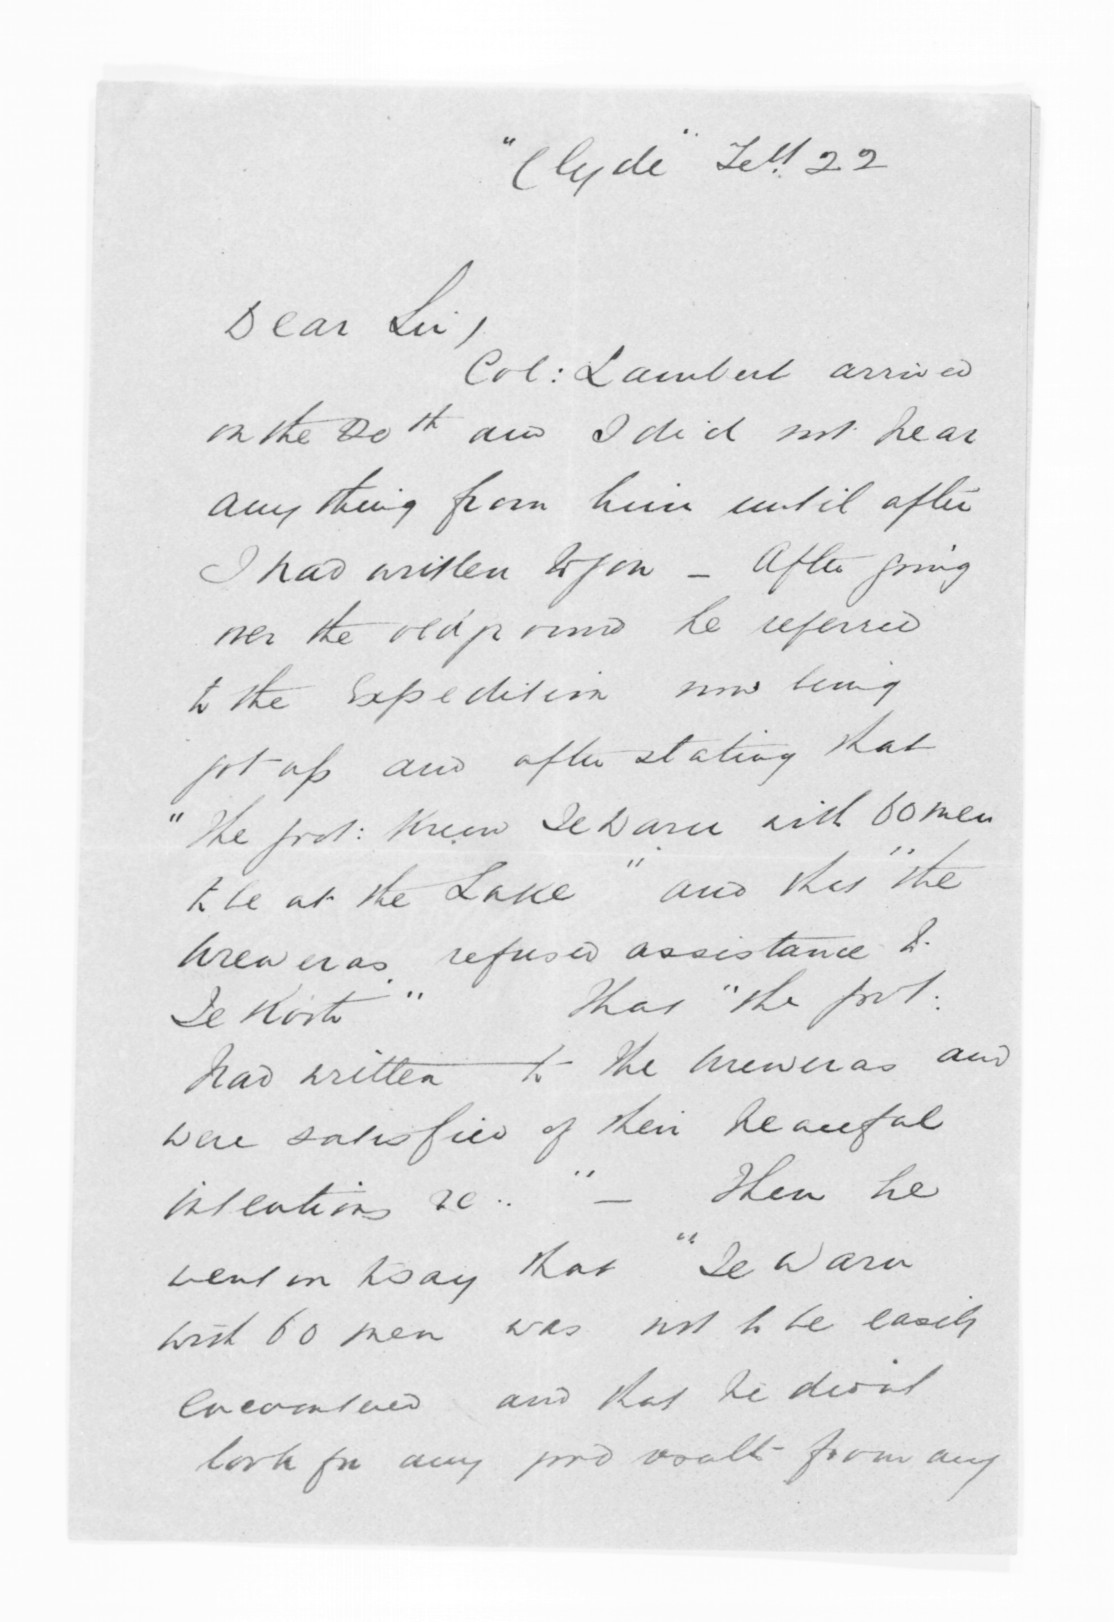 "Clyde" Feb. 22
Dear Sir,
Col: Lambert arrived
on the 20th and I did not hear
anything from him until after
I had written to you – After going
over the old ground he referred
to the Expedition now being
got up and after stating that
"The govt: knew Te Waru with 60 men
to be at the Lake" and that "the
Urewеras refused assistance to
Te Kooti" That "the govt:
had written to the Ureweras and
were satisfied of their peaceful
intentions &c.." – Then he
went on to say that "Te Waru
with 60 men was not to be easily
encountered and that he didn't
look for any good result from any